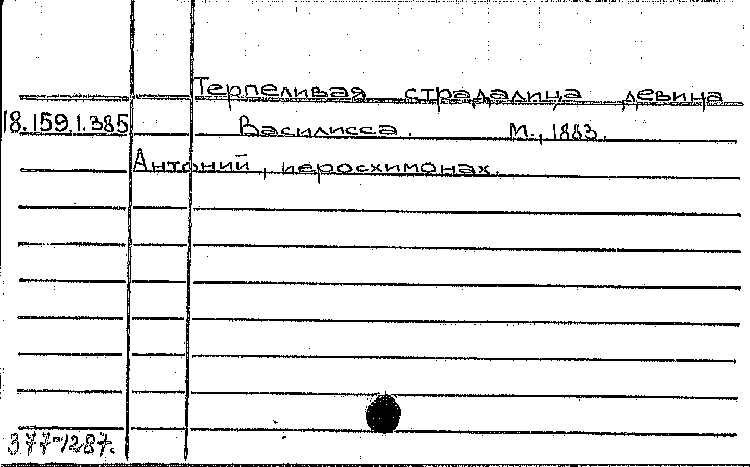 Терпеливая страдалица девица
18.159.1.385 Василисса. М., 1883.
Антоний, иеросхимонах.
377-1287.